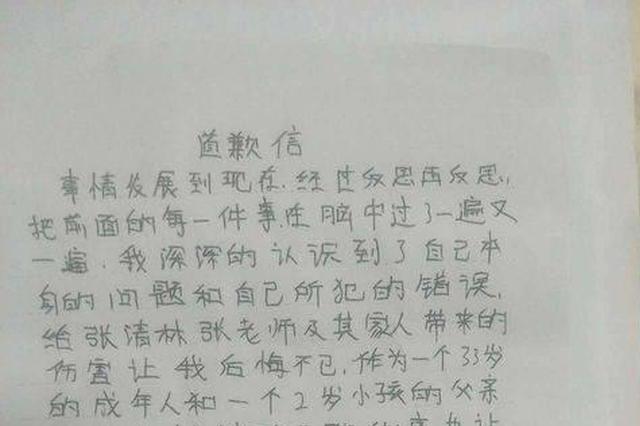 道歉信
事情发展到现在.经过反思再反思,
把前面的每一件事在脑中过了一遍又
一遍.我深深的认识到了自己本
身的问题和自己所犯的错误,
给张清林张老师及其家人带来的
伤害让我后悔不已,作为一个33岁
的成年人和一个2岁小孩的父亲